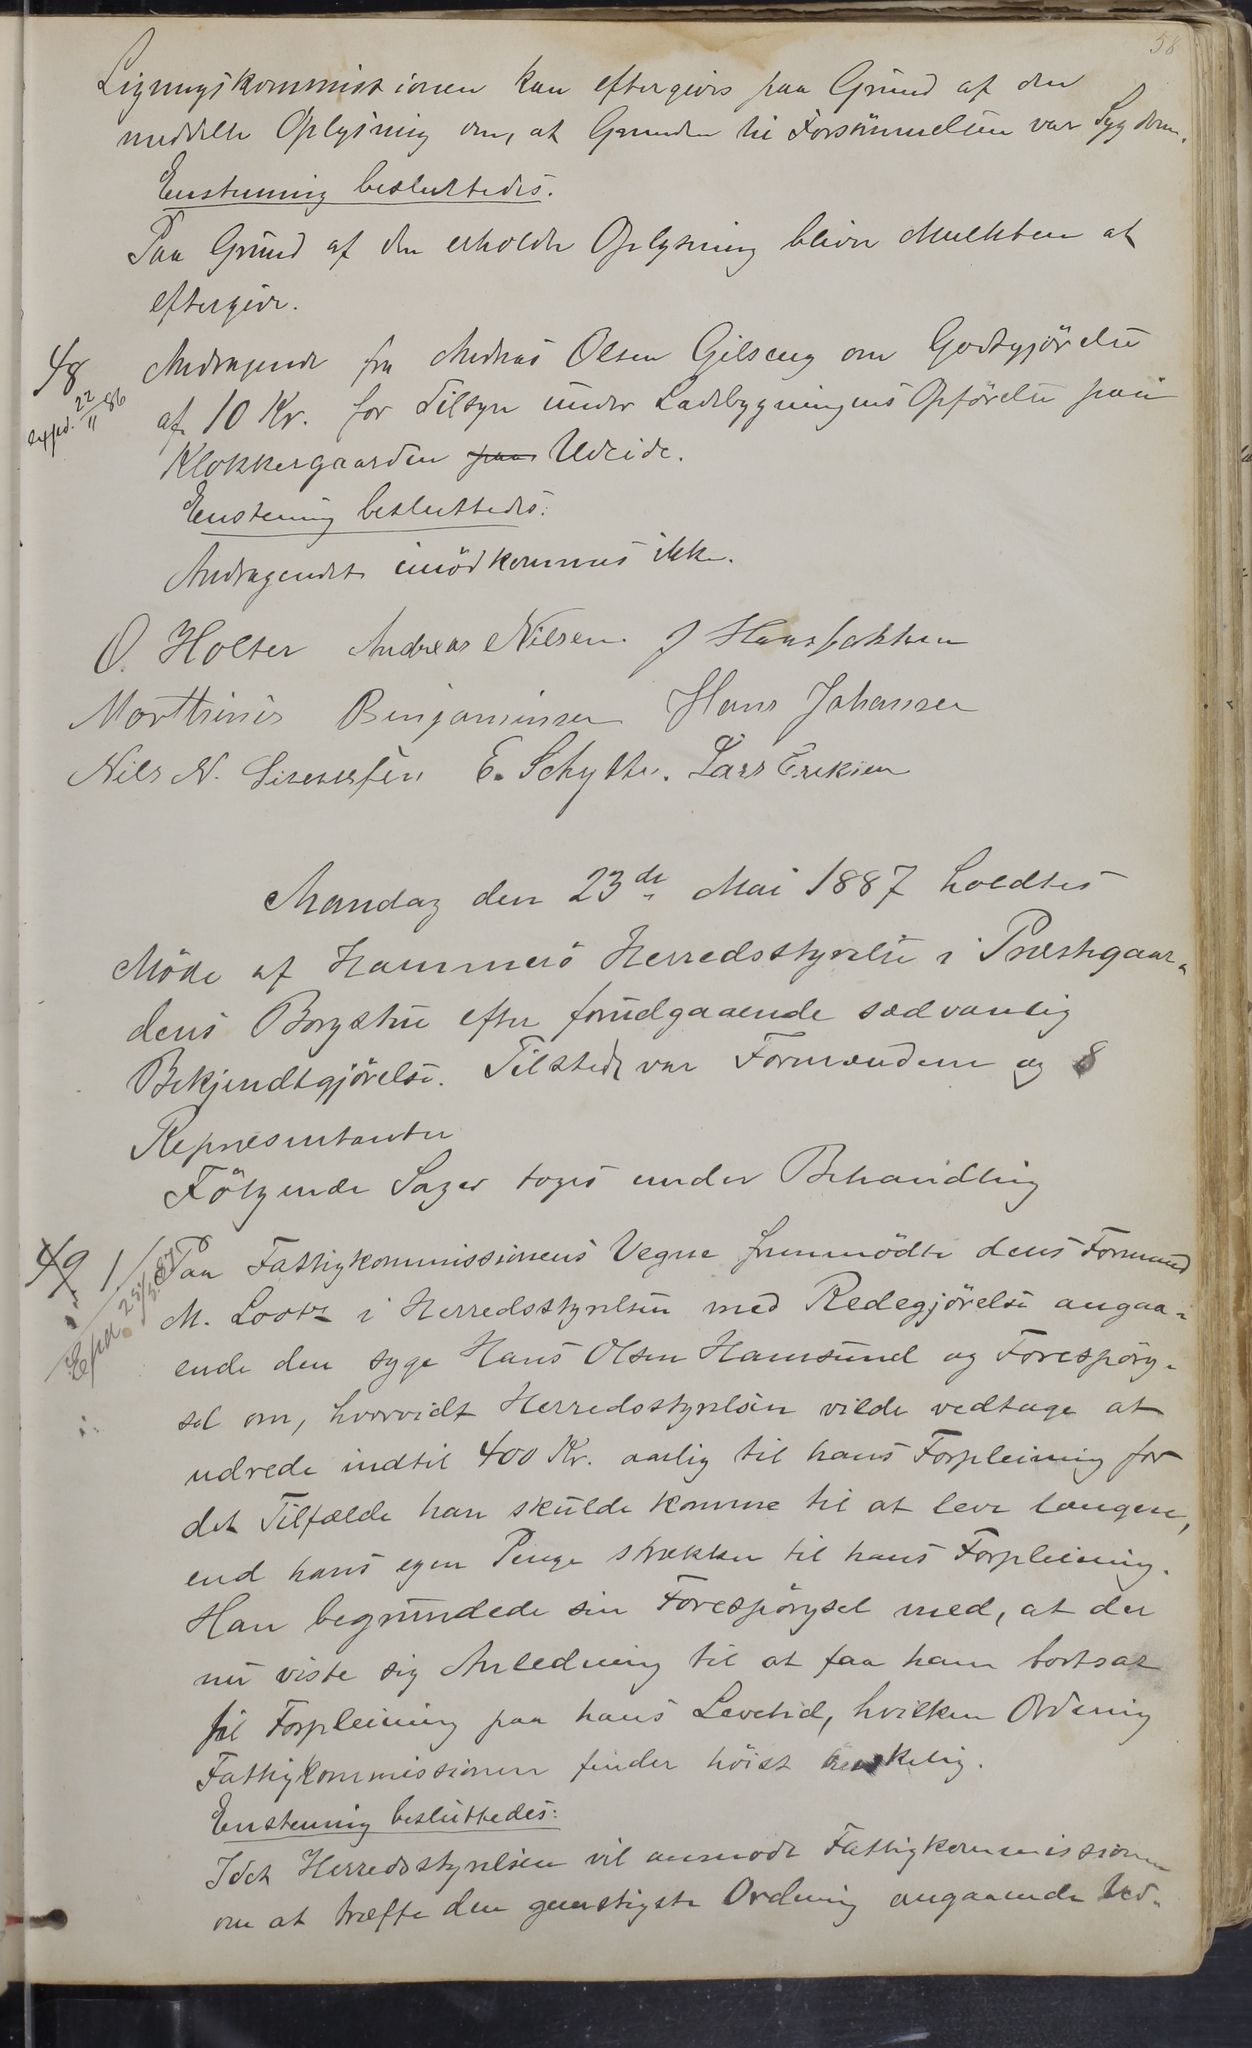 58
Ligningskommissionen kan eftergives paa Grund af den
meddelte Oplysning om, at Grunden til Forsömmelsen var Sygdom.
Enstemmig besluttedes.
Paa Grund af den erholdte Oplysning bliver Mulkten at
eftergive.
48 Andragende fra Andreas Olsen om Godtgjörelse
exped. 22/11 86 af 10 Kr. for Tilsyn under Ladebygningens Opförelse paa
Klokkergaarden paa Udeide.
Enstemmig besluttedes:
Andragendet imödkommes ikke.
O. Holter Andreas Nilsen. J Hansbakken
Morthinus Benjaminsen Hans Johansen
Nils N. E. Schytte. Lars Eriksen
Mandag den 23de Mai 1887 holdtes
Möde af Hammerö Herredsstyrelse i Præstegaar-
dens Borgstue efter forudgaaende sædvanlig
Bekjendtgjörelse. Tilstede var Formanden og 8
Repræsentanter
Fölgende Sager toges under Behandling
49 1/ Paa Fattigkommissionens Vegne fremmödte dens Formand
Exp. M. Lootz i Herredsstyrelsen med Redegjörelse angaa-
ende den syge Hans Olsen Hamsund og Forespörg-
sel om, hvorvidt Herredsstyrelsen vilde vedtage at
udrede indtil 400 Kr. aarlig til hans Forpleining for
det Tilfælde han skulde komme til at leve længere,
end hans egne Penge strækker til hans Forpleining.
Han begrundede sin Forespörgsel med, at der
nu viste sig Anledning til at faa ham bortsat
til Forpleining paa hans Levetid, hvilken Ordning
Fattigkommissionen finder höist önskelig.
Enstemmig besluttedes:
Idet Herredsstyrelsen vil anmode Fattigkommissionen
om at træffe den gunstigste Ordning angaaende Ud-